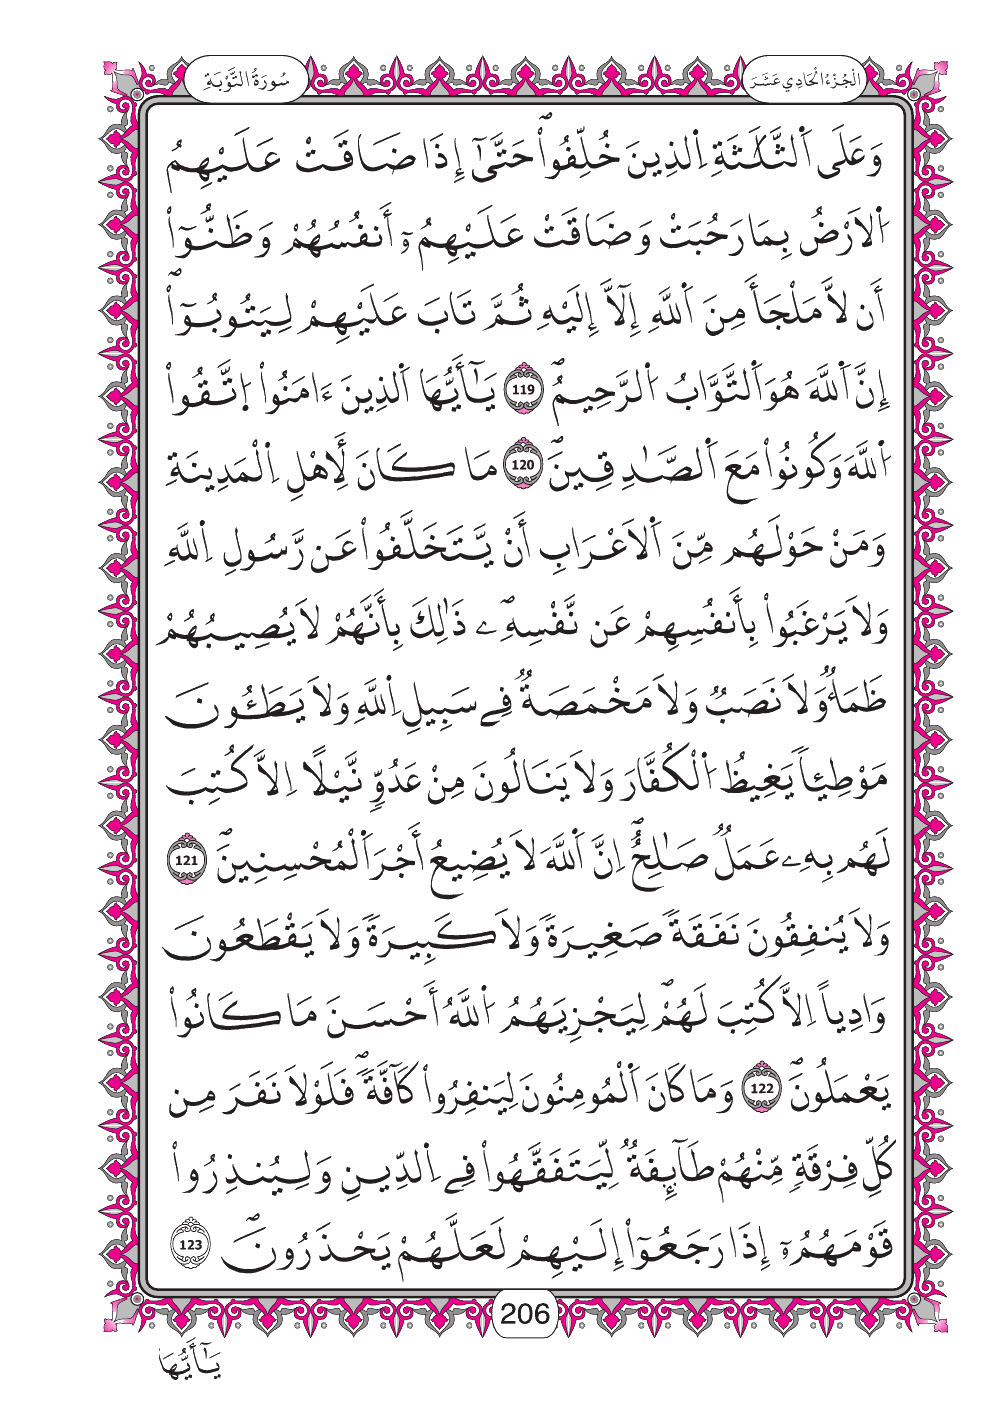 الجزء الحادي عشر
سورة التوبة
وَعَلَى اَ۬لثَّلَٰثَةِ اِ۬لذِينَ خُلِّفُواْۖ حَتَّىٰٓ إِذَا ضَاقَتْ عَلَيْهِمُ
اُ۬لَارْضُ بِمَا رَحُبَتْ وَضَاقَتْ عَلَيْهِمُۥٓ أَنفُسُهُمْ وَظَنُّوٓاْ
أَن لَّا مَلْجَأَ مِنَ اَ۬للَّهِ إِلَّآ إِلَيْهِ ثُمَّ تَابَ عَلَيْهِمْ لِيَتُوبُوٓاْۖ
إِنَّ اَ۬للَّهَ هُوَ اَ۬لتَّوَّابُ اُ۬لرَّحِيمُۖ 119 يَٰٓأَيُّهَا اَ۬لذِينَ ءَامَنُواْ اُ۪تَّقُواْ
اُ۬للَّهَ وَكُونُواْ مَعَ اَ۬لصَّٰدِقِينَۖ 120 مَا كَانَ لِأَهْلِ اِ۬لْمَدِينَةِ
وَمَنْ حَوْلَهُم مِّنَ اَ۬لَاعْرَابِ أَنْ يَّتَخَلَّفُواْ عَن رَّسُولِ اِ۬للَّهِ
وَلَا يَرْغَبُواْ بِأَنفُسِهِمْ عَن نَّفْسِهِۦۖ ذَٰلِكَ بِأَنَّهُمْ لَا يُصِيبُهُمْ
ظَمَأٞ وَلَا نَصَبٞ وَلَا مَخْمَصَةٞ فِے سَبِيلِ اِ۬للَّهِ وَلَا يَطَـُٔونَ
مَوْطِئاٗ يَغِيظُ اُ۬لْكُفَّارَ وَلَا يَنَالُونَ مِنْ عَدُوّٖ نَّيْلًا اِلَّا كُتِبَ
لَهُم بِهِۦ عَمَلٞ صَٰلِحٌۖ اِنَّ اَ۬للَّهَ لَا يُضِيعُ أَجْرَ اَ۬لْمُحْسِنِينَۖ 121
وَلَا يُنفِقُونَ نَفَقَةٗ صَغِيرَةٗ وَلَا كَبِيرَةٗ وَلَا يَقْطَعُونَ
وَادِياً اِلَّا كُتِبَ لَهُمْۖ لِيَجْزِيَهُمُ اُ۬للَّهُ أَحْسَنَ مَا كَانُواْ
يَعْمَلُونَۖ 122 وَمَا كَانَ اَ۬لْمُومِنُونَ لِيَنفِرُواْ كَآفَّةٗۖ فَلَوْلَا نَفَرَ مِن
كُلِّ فِرْقَةٖ مِّنْهُمْ طَآئِفَةٞ لِّيَتَفَقَّهُواْ فِے اِ۬لدِّينِ وَلِيُنذِرُواْ
قَوْمَهُمُۥٓ إِذَا رَجَعُوٓاْ إِلَيْهِمْ لَعَلَّهُمْ يَحْذَرُونَۖ 123
206
يَٰٓأَيُّهَا